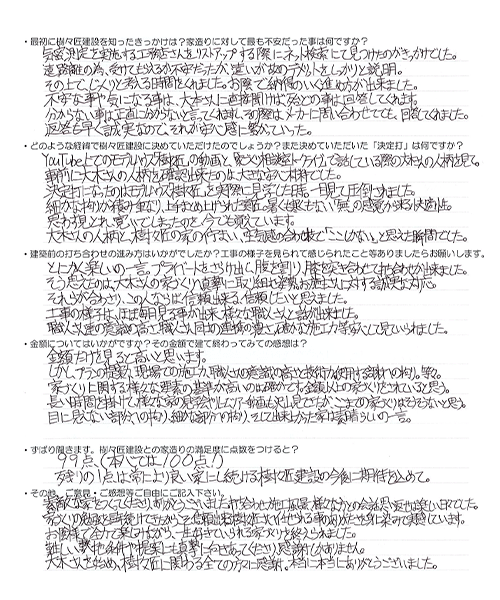 ・最初に樹々匠建設を知ったきっかけは？家造りに対して最も不安だった事は何ですか？
気密測定を実施する工務店さんをリストアップする際にネット検索にて見つけたのがきっかけでした。
遠距離の為、受けてもらえるか不安だったが、遠いが故のデメリットをしっかりと説明。
その上で、じっくりと考える時間をくれました。お陰で納得のいく進め方が出来ました。
不安な事や気になる事は、大木さんに直接聞けば殆どの事は回答してくれます。
分からない事は正直に分からないと言ってくれますし、その際はメーカーに問い合わせてでも、回答してくれました。
返答も早く誠実なので、それが安心感に繋がっていった。
・どのような経緯で樹々匠建設に決めていただけたのでしょうか？また決めていただいた「決定打」は何ですか？
YouTube上でのモデルハウス「樹匠」の動画と、大木さんの人柄を見て。
事前に大木さんの人柄を確認出来たのは大きな安心材料でした。
決定打になったのはモデルハウス「樹匠」を実際に見学した時。一目見て圧倒されました。
細かな拘りが積み重なり、上げまで仕上げられた実匠。暑くも寒くもない「無」の感覚が来る快適性。
思わず見とれ、驚いてしまったのを今でも覚えています。
大木さんの人柄と、樹々匠の家の佇まい、空気感の合わせ技で「ここしかない」と思えた瞬間でした。
・建築前の打ち合わせの進み方はいかがでしたか？工事の様子を見られて感じられたこと等ありましたらお願いします。
とにかく楽しいの一言。プライベートをさらけ出し、腹を割り、膝を突き合わせて打ち合わせが出来ました。
そう思えたのは、大木さんの家づくりに真摯に取り組む姿勢、お施主さんに対する誠実な対応。
それが分かるから、この人ならば信頼出来る、信頼したいと思いました。
工事の様子は、ほぼ毎日見る事が出来、様々な職人さんと話が出来ました。
職人さん達の意識の高さ、職人さん同士の連携の濃さ、確かな施工力等、安心して見ていられました。
・金額についてはいかがですか？その金額で建て終わってみての感想は？
金額だけを見ると高いと思います。
しかし、プランの提案力、現場での施工力、職人さんの意識の高さと技術力、使用する部材への拘り。等々。
家づくりに関する様々な要素の基準が高いのは確かです。金額以上の家づくりをされていると思う。
長い時間を掛けて、様々な家の見学会やルームツアー動画も沢山見てきたが、ここまでの家づくりはそうそうないと思う。
目に見えない部分への拘り、細かな部分への拘り、そして出来上がった家は素晴らしいの一言。
・ずばり聞きます。樹々匠建設との家造りの満足度に点数をつけると？
99点、(本心では100点！)
残りの1点は常により良い家にし続ける樹々匠建設の今後に期待を込めて。
・その他、ご意見・ご感想等ご自由にご記入下さい。
素敵な家をつくって下さり、ありがとうございました。打ち合わせ、施工風景、様々な方との会話、思い返せば楽しい日々でした。
お陰様で全力で楽しみながら、一生好きでいられる家づくりを終えられました。
難しい敷地条件や提案にも真摯に向き合って下さり、感謝しかありません。
大木さんを始め、樹々匠に関わる全ての方々に感謝。本当に本当にありがとうございました。